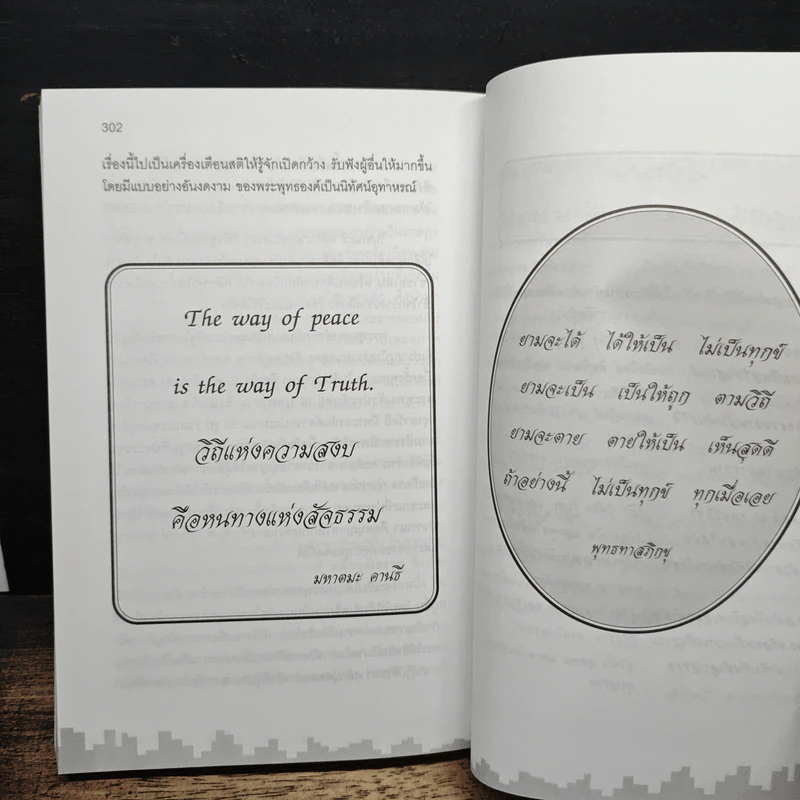 302
เรื่องนี้ไปเป็นเครื่องเตือนสติให้รู้จักเปิดกว้าง รับฟังผู้อื่นให้มากขึ้น
โดยมีแบบอย่างอันงดงาม ของพระพุทธองค์เป็นนิทัศน์อุทาหรณ์
The way of peace
is the way of Truth.
วิถีแห่งความสงบ
คือหนทางแห่งสัจธรรม
มหาตมะ คานธี
ยามจะได้ ได้ให้เป็น ไม่เป็นทุกข์
ยามจะเป็น เป็นให้ถูก ตามวิถี
ยามจะตาย ตายให้เป็น เห็นสุดดี
ถ้าอย่างนี้ ไม่เป็นทุกข์ ทุกเมื่อเอย
พุทธทาสภิกขุ